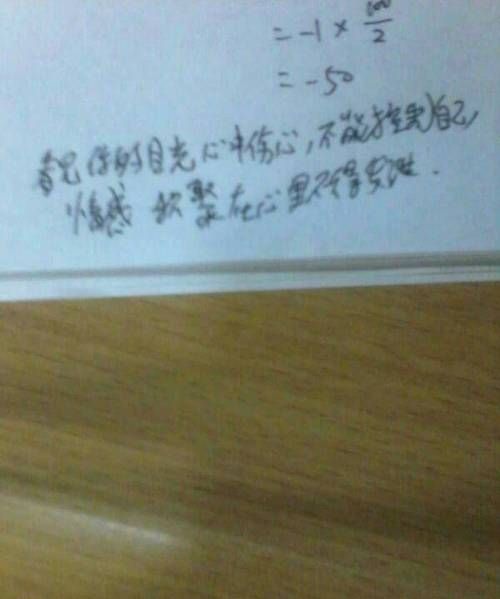 = -1 × 100/2
= -50
看见你的目光心中伤心,不能控制自己,
情感积聚在心里不得发泄.